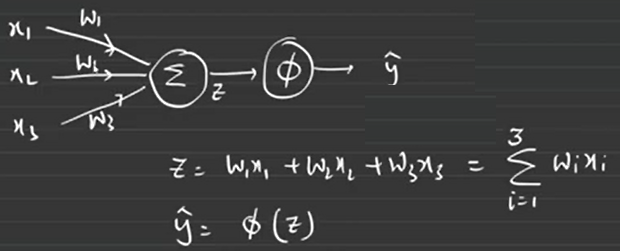 x₁ W₁
x₂ W₂ Σ z ϕ ŷ
x₃ W₃
z = W₁x₁ + W₂x₂ + W₃x₃ = 3 Σ i=1 Wᵢxᵢ
ŷ = ϕ(z)